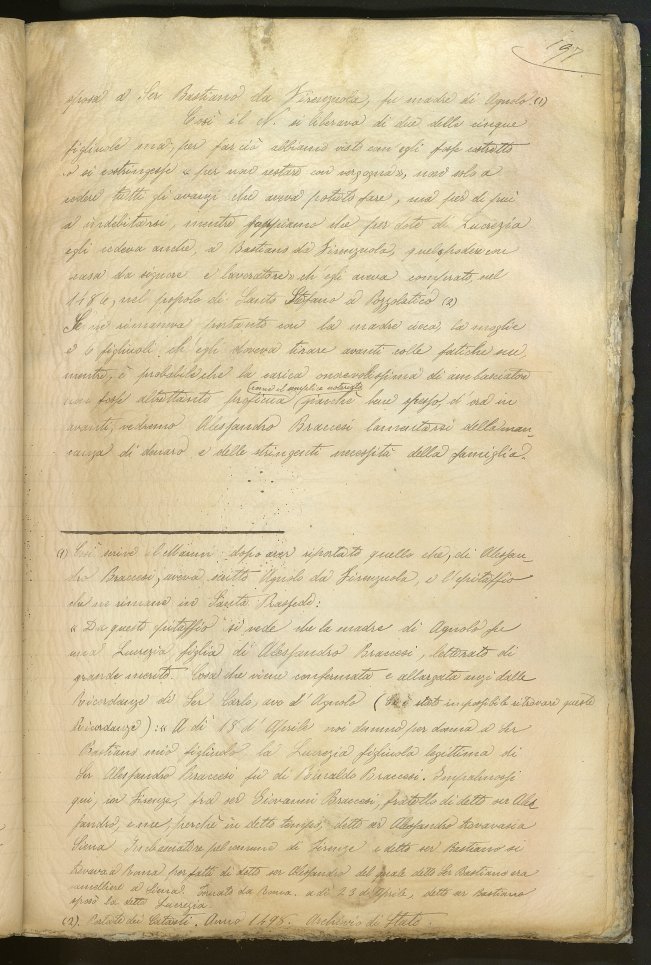 197
sposa a Ser Bastiano da Firenzuola, fu madre di Agnolo. (1)
Così il N. si liberava di due delle cinque
figliuole ma, per far ciò, abbiamo visto com'egli fosse costretto
o si costringesse « per non restare con vergogna », non solo a
cedere tutti gli avanzi che aveva potuto fare, ma per di più
a indebitarsi, mentre sappiamo che per dote di Lucrezia
egli cedeva anche, a Bastiano da Firenzuola, quel podere con
casa da signore e lavoratore » ch'egli aveva comprato, nel
1486, nel popolo di Santo Stefano a Pozzolatico (2)
Se ne rimaneva pertanto con la madre cieca, la moglie
e 6 figliuoli, ch'egli doveva tirare avanti colle fatiche sue,
mentre, è probabile che la carica onorevolissima di ambasciatore
(come il semplice notariato
non fosse altrettanto proficua giacchè bene spesso, d'ora in
avanti, vedremo Alessandro Braccesi lamentarsi della man-
canza di denaro e delle stringenti necessità della famiglia.
(1) Così scrive il Manni dopo aver riportato quello che, di Alessan-
dro Braccesi, aveva scritto Agnolo da Firenzuola, e l'epitaffio
che ne rimane in Santa Prassede:
« Da questo epitaffio si vede che la madre di Agnolo fu
una Lucrezia, figlia di Alessandro Braccesi, letterato di
grande merito. Cosa che viene confermata e allargata anzi dalle
Ricordanze di Ser Carlo, avo d'Agnolo (Ci è stato impossibile ritrovare queste
Ricordanze): « A dì 18 d'Aprile noi demmo per donna a Ser
Bastiano mio figliuolo la Lucrezia figliuola legittima di
Ser Alessandro Braccesi fu di Rinaldo Braccesi. Impalmossi
qui, in Firenze, fra ser Giovanni Braccesi, fratello di detto ser Ales-
sandro, e me, perchè in detto tempo, detto ser Alessandro trovavasi a
Siena Imbasciatore pel comune di Firenze e detto ser Bastiano si
trovava a Roma per fatti di detto ser Alessandro del quale detto Ser Bastiano era
cancelliere a Siena. Tornato da Roma a dì 28 di Aprile, detto ser Bastiano
sposò la detta Lucrezia.
(2) Catasti. Anno 1498. Archivio di Stato.